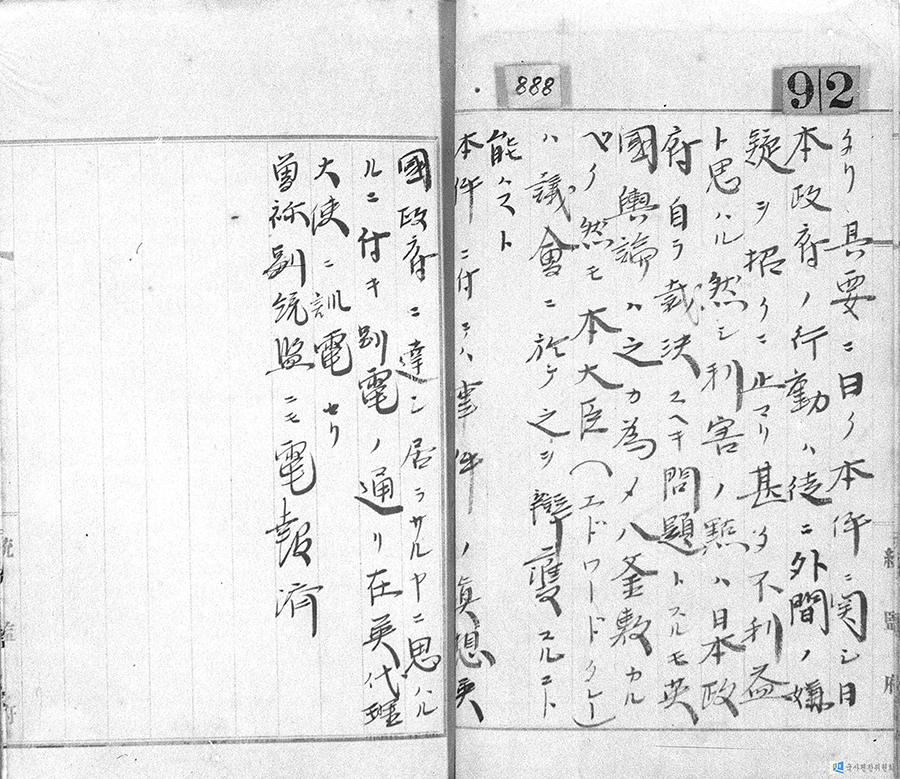 92
888
タリ其要ニ曰ク本件ニ関シ日
本政府ノ行動ハ徒ニ外間ノ嫌
疑ヲ招クニ止マリ甚タ不利益
ト思ハル然シ利害ノ點ハ日本政
府自ラ裁決スヘキ問題トスルモ英
國輿論ハ之カ為メ八釜敷カル
ヘク然モ本大臣(エドワードグレー)
ハ議會ニ於テ之ヲ辯護スルコト
能ハスト
本件ニ付テハ事件ノ真想英
國政府ニ達シ居ラサルヤニ思ハル
ルニ付キ別電ノ通リ在英代理
大使ニ訓電セリ
曽祢副統監ニモ電報済
統監府
統監府
국사편찬위원회